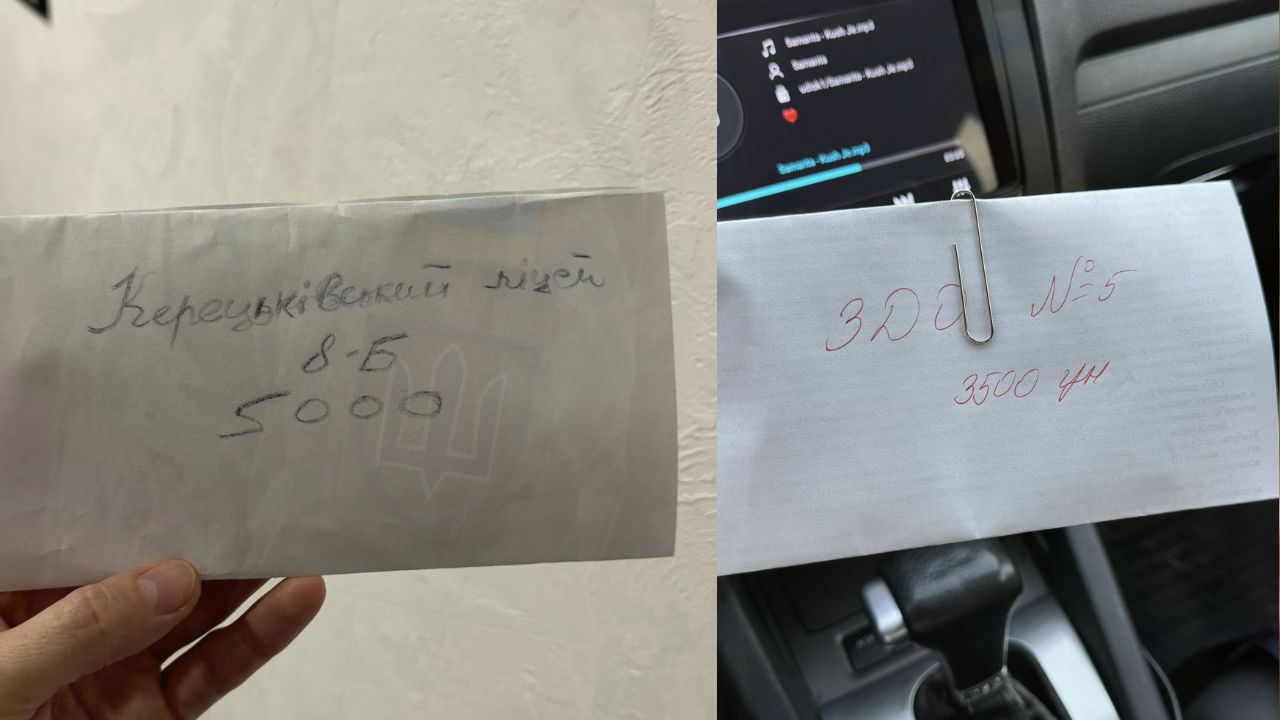 Керецьківський ліцей
8-Б
5000
Samanta - Kush Je.mp3
Samanta
udisk1/Samanta - Kush Je.mp3
Samanta - Kush Je.mp3
ЗДО №5
3500 грн